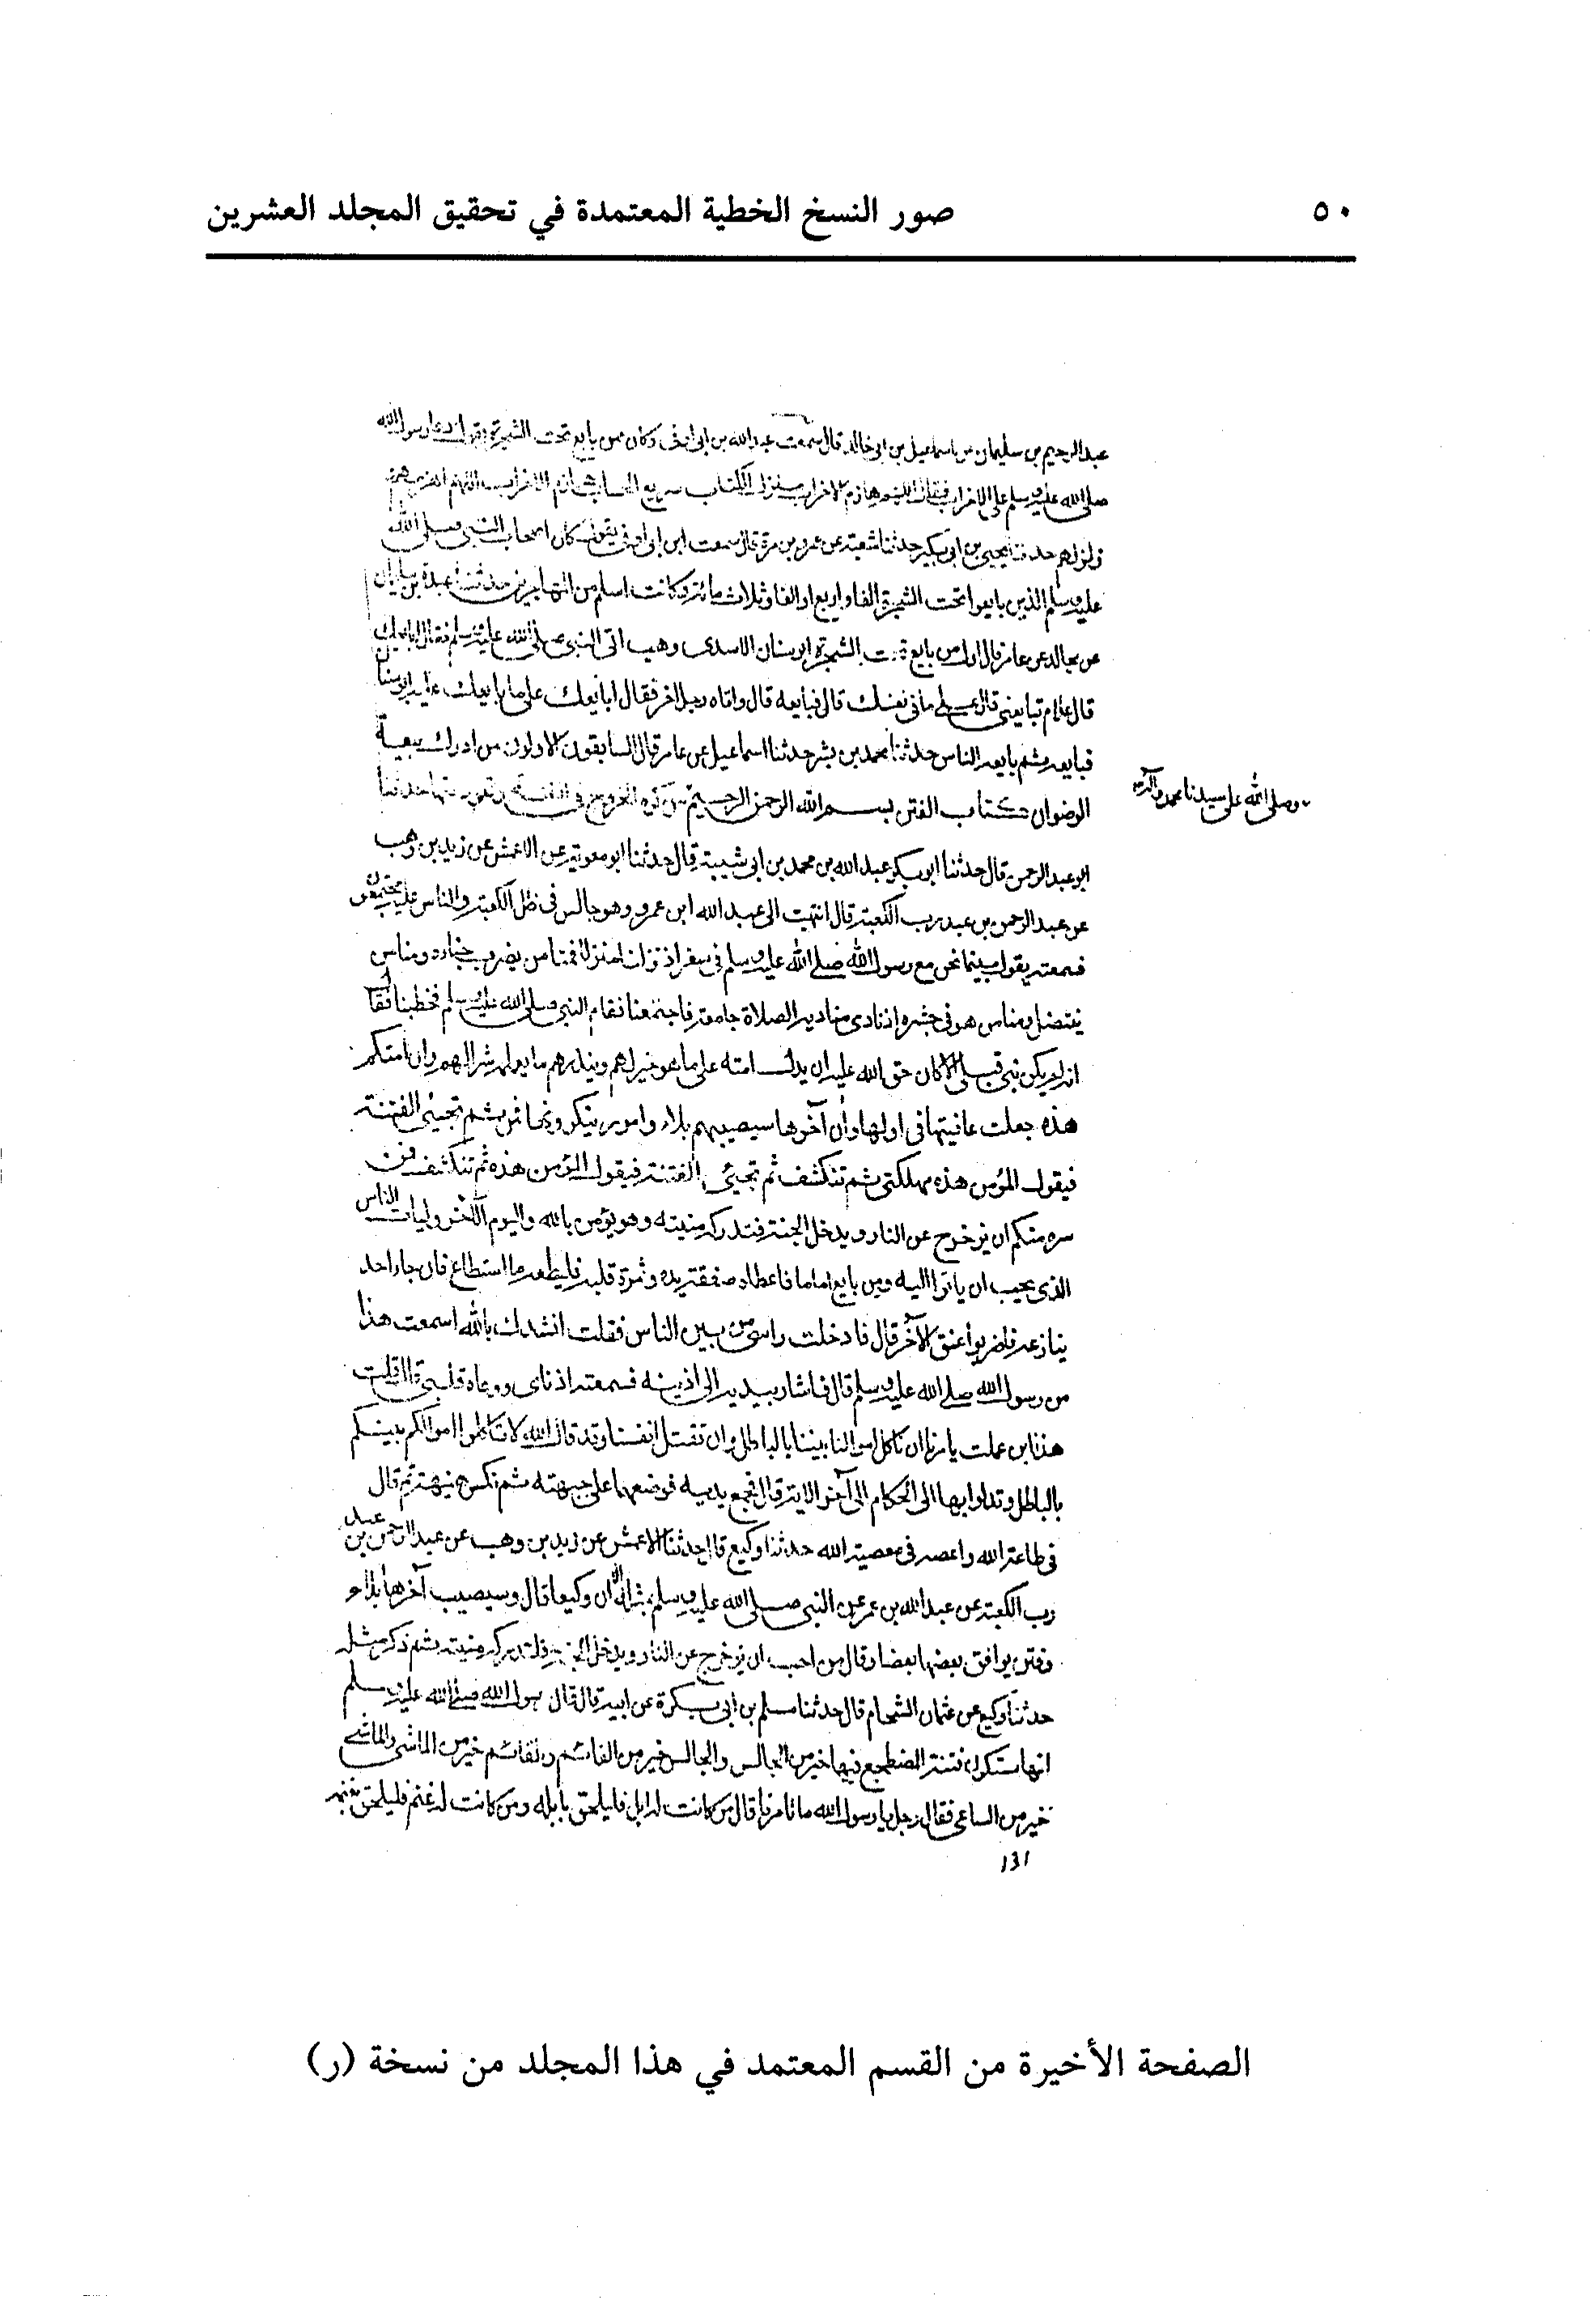 ٥٠
صور النسخ الخطية المعتمدة في تحقيق المجلد العشرين
عبد الرحيم بن سليمان عن اسماعيل بن ابى خالد قال سمعت عبد الله بن ابى اوفى وكان ممن بايع تحت الشجرة يقول دعا رسول الله
صلى الله عليه وسلم على الاحزاب فقال اللهم منزل الكتاب سريع الحساب هازم الاحزاب اللهم اهزمهم
وزلزلهم حدثنا يحيى بن ابى بكير حدثنا شعبة عن عمرو بن مرة قال سمعت ابن ابى اوفى يقول كان اصحاب النبى صلى الله
عليه وسلم الذين بايعوا تحت الشجرة الفا واربع او الفا وثلاث مائة وكانت اسلم من المهاجرين حدثنا عبدة بن سليمان
عن مجالد عن عامر قال اول من بايع تحت الشجرة ابو سنان الاسدى وهب اتى النبى صلى الله عليه وسلم فقال ابايعك
قال علام تبايعنى قال على ما فى نفسك قال فبايعه قال واتاه رجل اخر فقال ابايعك على ما بايعك عليه ابو سنان
فبايعه ثم بايعه الناس حدثنا محمد بن بشر حدثنا اسماعيل عن عامر قال السابقون الاولون من ادرك بيعة
الرضوان كتاب الفتن بسم الله الرحمن الرحيم من كره الخروج فى الفتنة وتعوذ منها حدثنا
وصلى الله على سيدنا محمد وآله
ابو عبد الرحمن قال حدثنا ابو بكر عبد الله بن محمد بن ابى شيبة قال حدثنا ابو معوية عن الاعمش عن زيد بن وهب
عن عبد الرحمن بن عبد رب الكعبة قال انتهيت الى عبد الله ابن عمرو وهو جالس فى ظل الكعبة والناس عليه مجتمعون
فسمعته يقول بينما نحن مع رسول الله صلى الله عليه وسلم فى سفر اذ نزلنا منزلا فمنا من يضرب خباءه ومنا من
ينتضل ومنا من هو فى جشره إذ نادى مناديه الصلاة جامعة فاجتمعنا فقام النبى صلى الله عليه وسلم فخطبنا فقال
انه لم يكن نبى قبلى الا كان حق الله عليه ان يدل امته على ما هو خير لهم وينذرهم ما يعلمه شرا لهم وان امتكم
هذه جعلت عافيتها فى اولها وأن آخرها سيصيبهم بلاء وامور ينكرونها فمن ثم تجيئ الفتنة
فيقول المؤمن هذه مهلكتى ثم تنكشف ثم تجيئ الفتنة فيقول المؤمن هذه ثم تنكشف فمن
سره منكم ان يزحزح عن النار ويدخل الجنة فتدركه منيته وهو يؤمن بالله واليوم الآخر وليات الناس
الذى يحب ان ياتوا اليه ومن بايع اماما فاعطاه صفقة يده وثمرة قلبه فليطعه ما استطاع فان جاء احد
ينازعه فاضربوا عنق الآخر قال فادخلت راسى من بين الناس فقلت انشدك بالله اسمعت هذا
من رسول الله صلى الله عليه وسلم قال فاشار بيديه الى اذنيه فسمعته اذناى ووعاه قلبى قال قلت
هذا ابن عمك يامرنا ان ناكل اموالنا بيننا بالباطل وان نقتل انفسنا وقد قال الله لا تاكلوا اموالكم بينكم
بالباطل وتدلوا بها الى الحكام الى آخر الاية قال فجمع يديه فوضعهما على جبهته ثم نكس هنيهة ثم قال
فى طاعة الله واعصه فى معصية الله حدثنا وكيع قال حدثنا الاعمش عن زيد بن وهب عن عبد الرحمن بن عبد
رب الكعبة عن عبد الله بن عمر عن النبى صلى الله عليه وسلم بمثله الا ان وكيعا قال وسيصيب آخرها بلاء
وفتن يوافق بعضها بعضا وقال من احب ان يزحزح عن النار ويدخل الجنة فلتدركه منيته ثم ذكر مثله
حدثنا وكيع عن عثمان الشحام قال حدثنا مسلم بن ابى بكرة عن ابيه قال قال رسول الله صلى الله عليه وسلم
انها ستكون فتنة المضطجع فيها خير من الجالس والجالس خير من القائم والقائم خير من الماشى والماشى
خير من الساعى فقال رجل يا رسول الله ما تامرنا قال من كانت له ابل فليلحق بابله ومن كانت له غنم فليلحق بغنمه
الصفحة الأخيرة من القسم المعتمد في هذا المجلد من نسخة (ر)